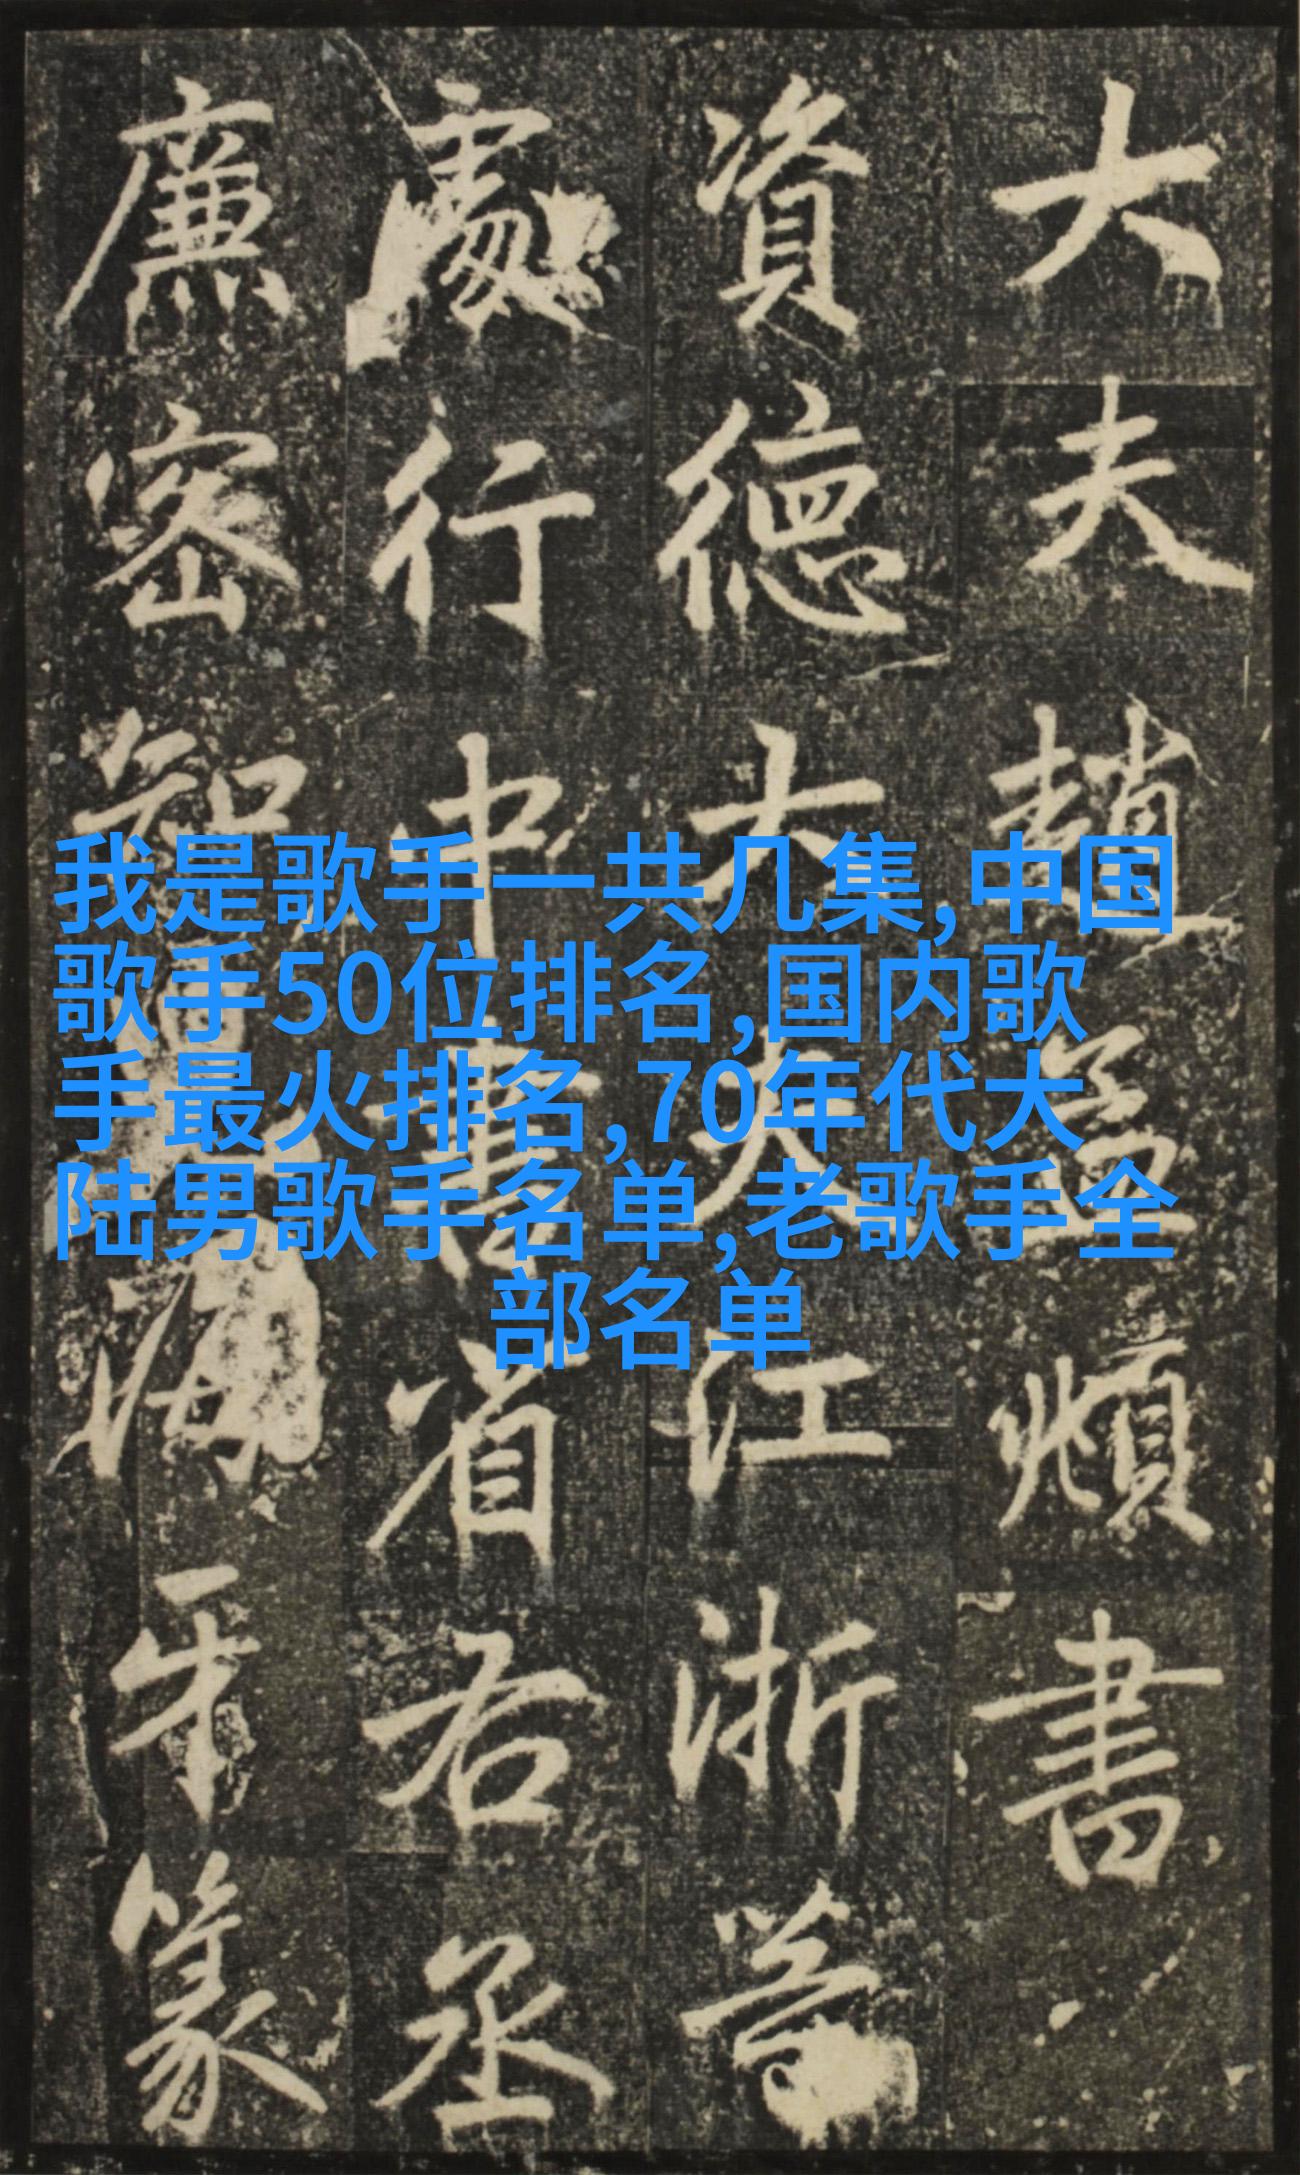 大夫趙孟頫書
資德大夫江浙等
處行中書省右丞
廉密知海牙篆
我是歌手一共几集,中国
歌手50位排名,国内歌
手最火排名,70年代大
陆男歌手名单,老歌手全
部名单